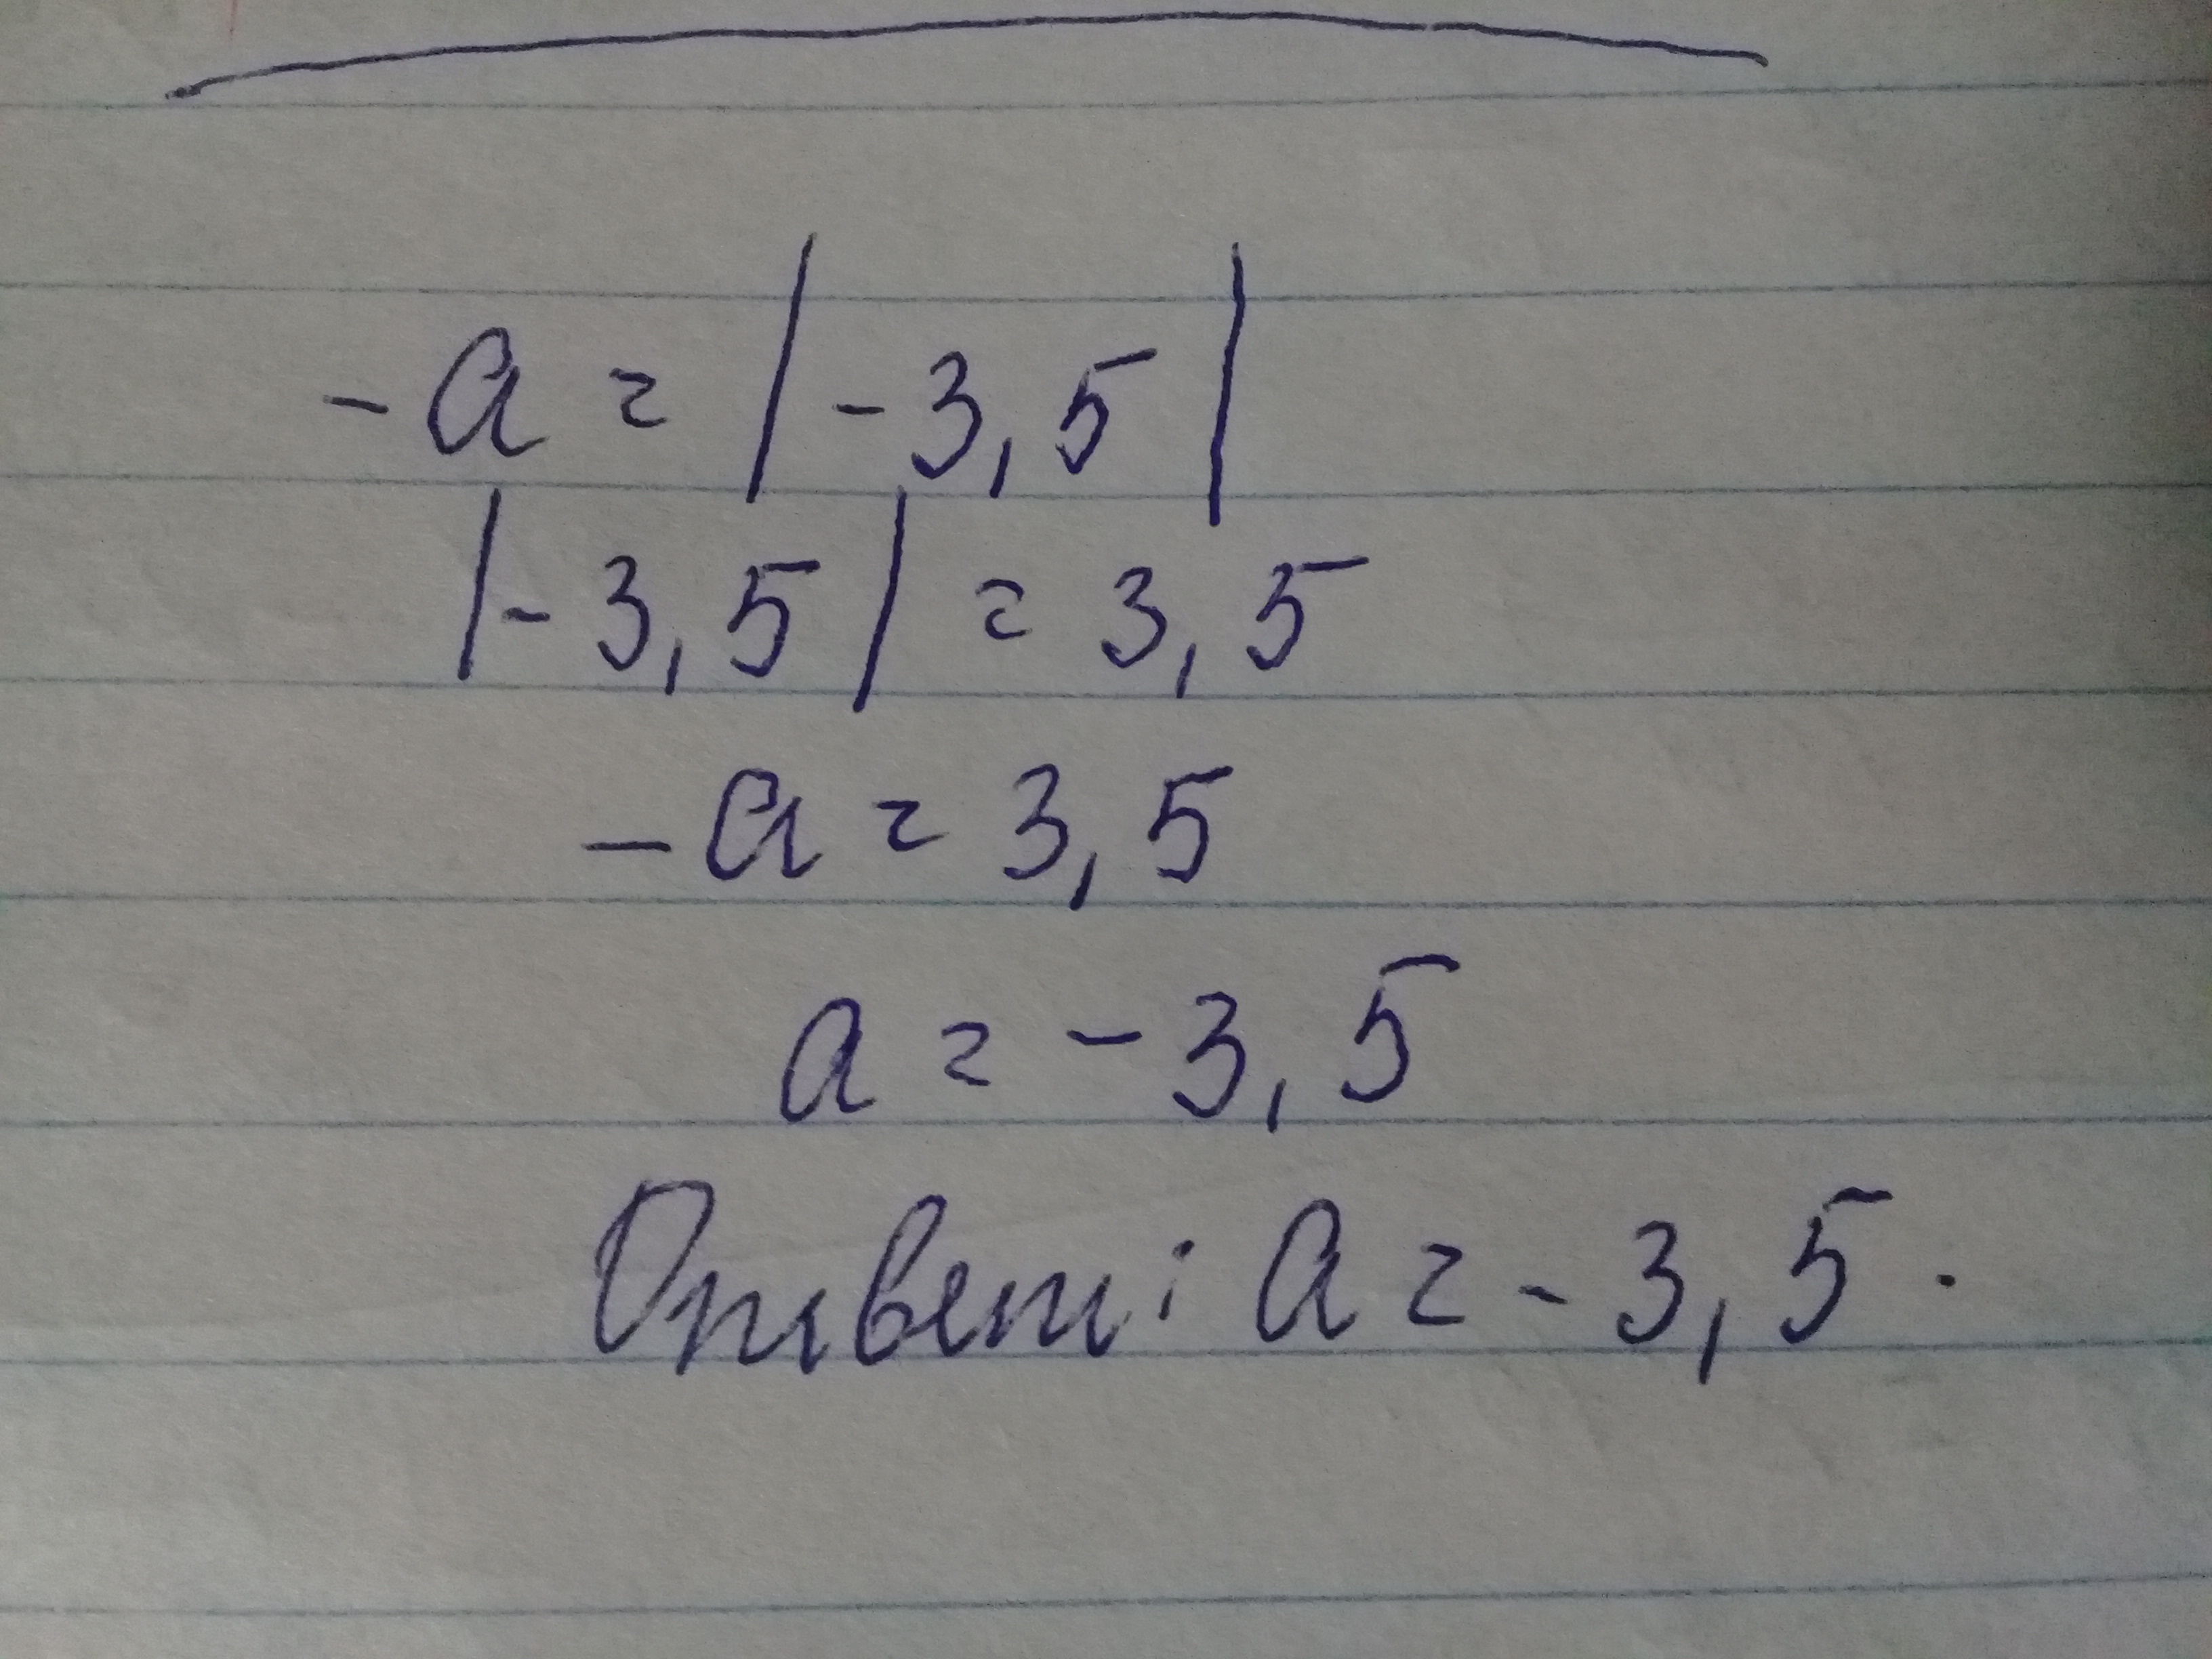 -a = |-3,5|
|-3,5| = 3,5
-a = 3,5
a = -3,5
Ответ: a = -3,5.